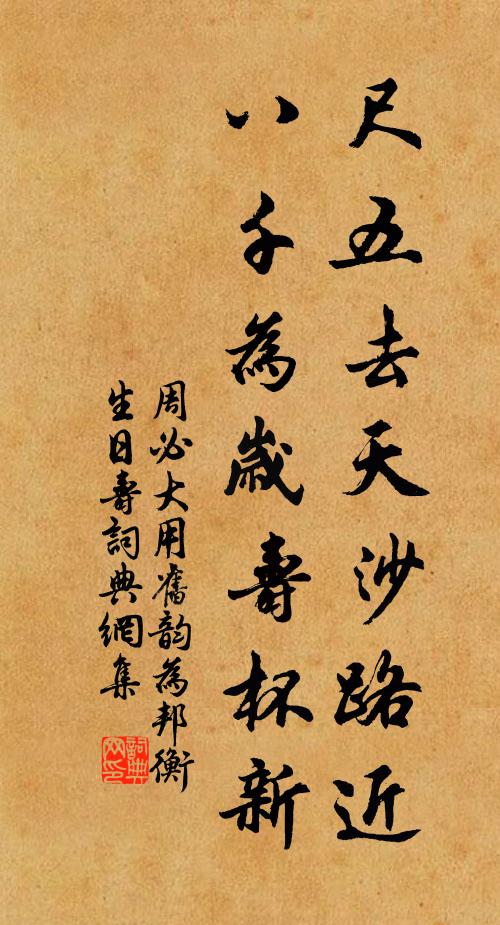 尺五去天沙路近
八千為歲壽杯新
周必大用舊韵為邦衡
生日壽詞典網集
詞典
网印